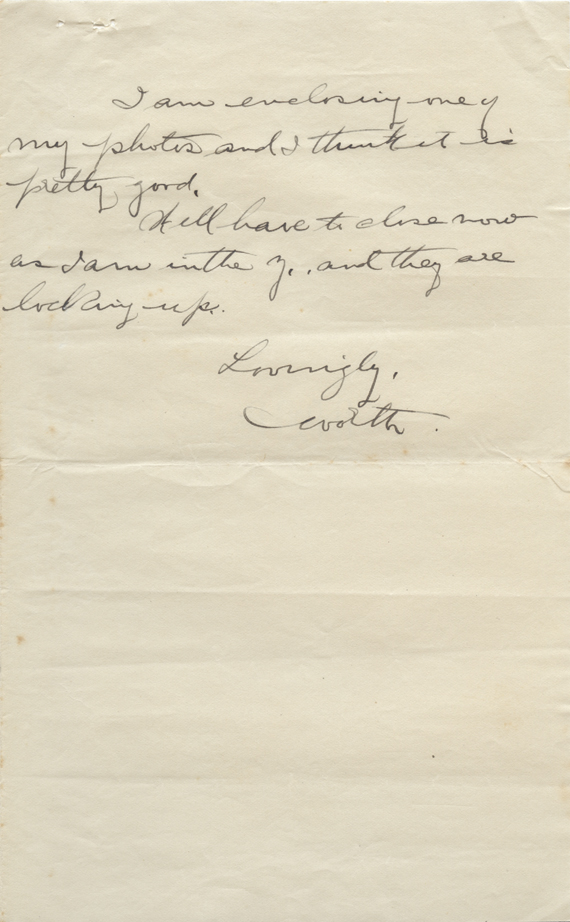 I am enclosing one of
my photos and I think it is
pretty good.
Will have to close now
as I am in the Y., and they are
locking up.
Lovingly,
Worth.